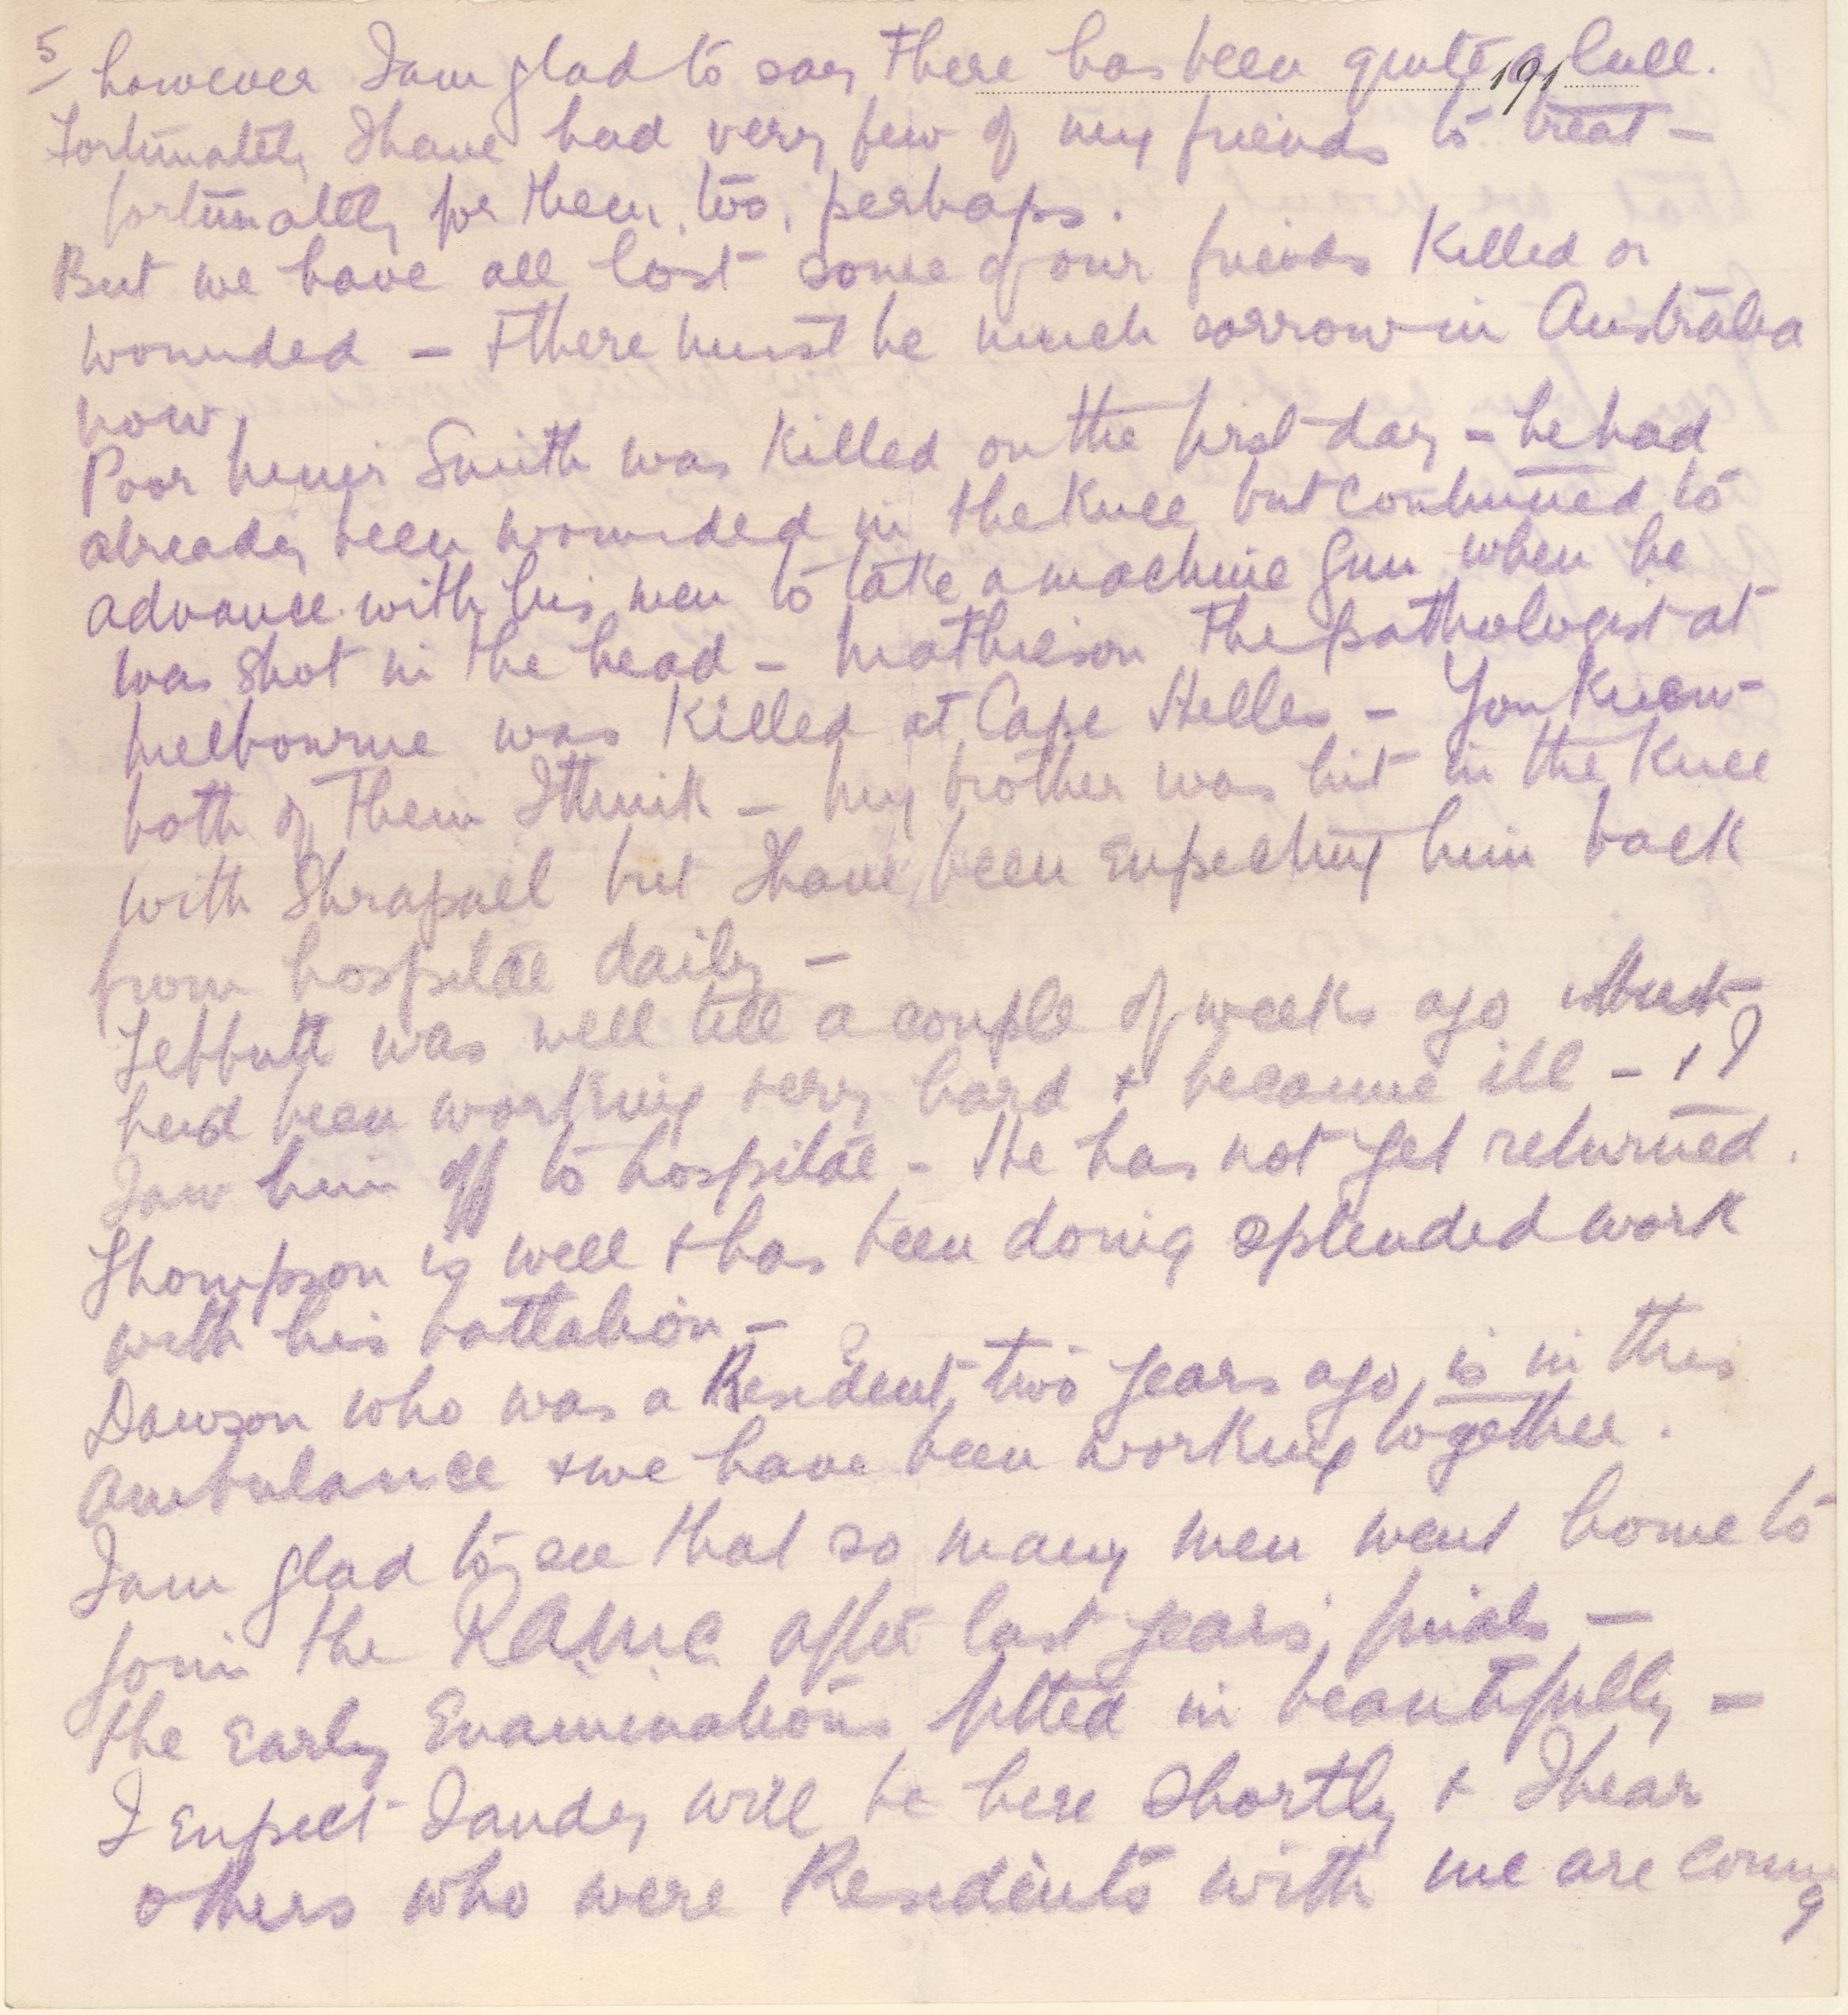 5
however I am glad to say there has been quite a lull.
191
Fortunately I have had very few of my friends to treat –
fortunately for them, too, perhaps.
But we have all lost some of our friends killed or
wounded – & there must be much sorrow in Australia
now.
Poor Smith was killed on the first day – he had
already been wounded in the knee but continued to
advance with his men to take a machine gun when he
was shot in the head – Mathieson the pathologist at
Melbourne was killed at Cape Helles – You knew
both of them I think – My brother was hit in the knee
with shrapnel but I have been expecting him back
from hospital daily –
Tebbutt was well till a couple of weeks ago but
had been working very hard & became ill – & I
saw him off to hospital – He has not yet returned.
Thompson is well & has been doing splendid work
with his battalion –
Dawson who was a Resident two years ago, is in this
Ambulance & we have been working together.
I am glad to see that so many men went home to
join the R.A.M.C. after last years' finals –
the Early Examinations fitted in beautifully –
I expect will be here shortly & I hear
others who were Residents with me are coming